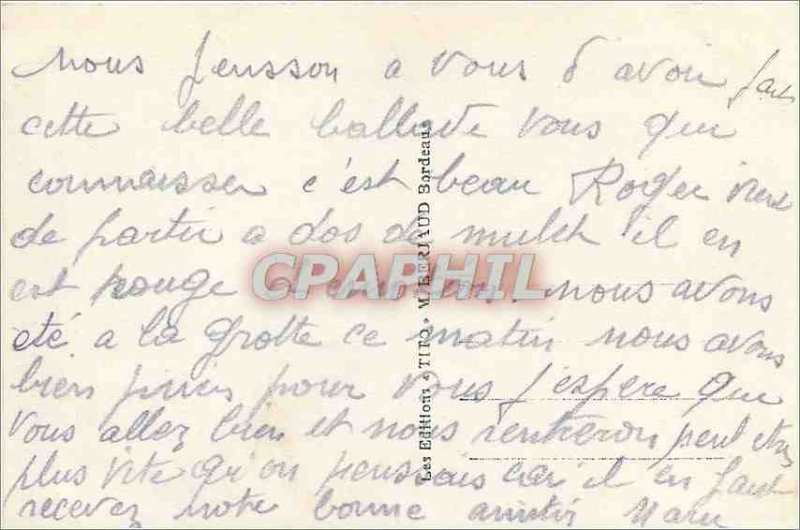 nous pensson a vous d'avoir fait
cette belle ballade vous que
connaisser c'est beau Roger viens
de partir a dos de mulet il en
est rouge nous avons
été a la grotte ce matin nous avons
bien priés pour vous j'espere que
vous allez bien et nous rentreron peut etre
plus vite qu'on penssais car il en faut
recevez notre bonne amitié
Les Editions "TITO" M. BERJAUD Bordeaux
CPAPHIL